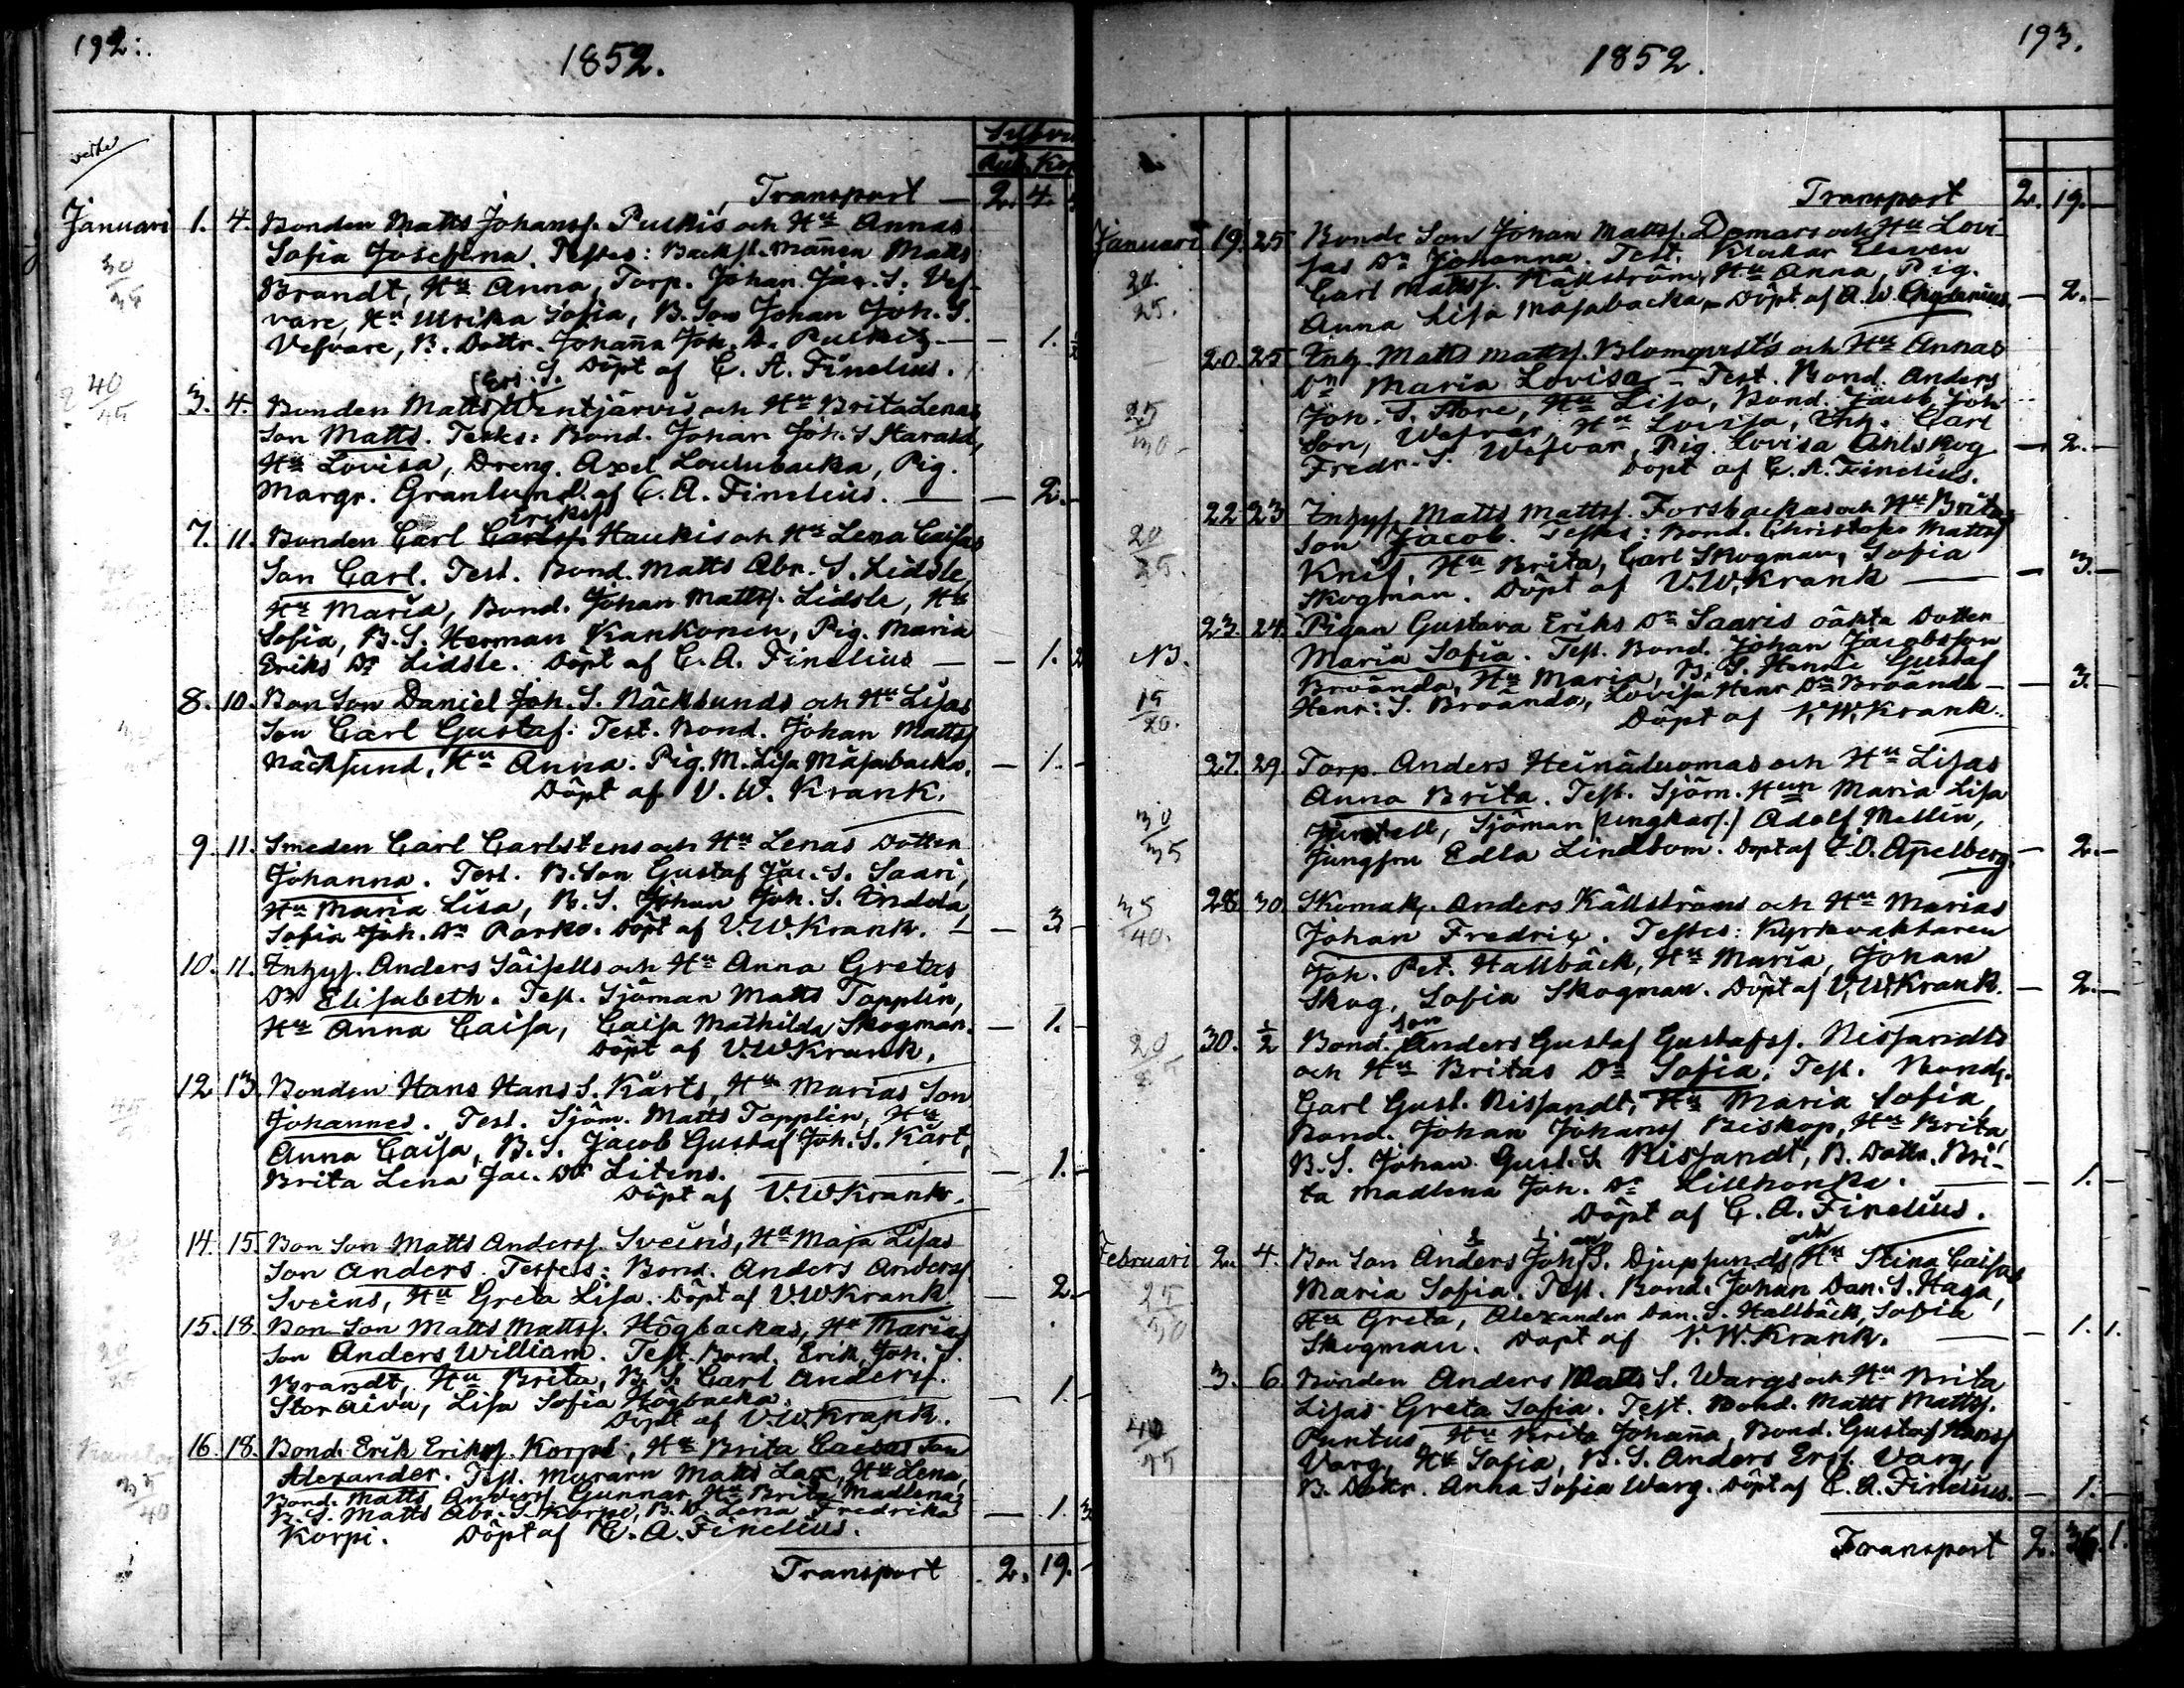 192.
1852.
Silfver
Rub. Kop
Transport — 2. 4.
Januari 1. 4. Bonden Matts Johanss. Puckis och Hu Annas
30/35 Sofia Josefina. Testes: Backst. Mannen Matts
Brandt, Hu Anna, Torp. Johan Jac. S. Vef-
vare, Hu Ulrika Sofia, B. Son Johan Joh. S.
Vefvare, B. Dottr. Johanna Joh. D. — 1.
Döpt af C. A. Finelius.
Eri. S.
40/45 3. 4. Bonden Matts Wentjärvis och Hu Brita Lenas
Son Matts. Testes: Bond. Johan Joh. S. Harald,
Hu Lovisa, Dreng. Axel Loulubacka, Pig.
Margr. Granlund. af C. A. Finelius. — 2.
Eriks
7. 11. Bonden Carl Carls. Haukis och Hu Lena Caisas
Son Carl. Test. Bond. Matts Abr. S. Lidsle,
Hu Maria, Bond. Johan Mattss. Lidsle, Hu
Sofia, B. S. Herman Kankonen, Pig. Maria
Eriks Dr Lidsle. Döpt af C. A. Finelius — 1. 2
8. 10. Bon Son Daniel Joh. S. Näcksunds och Hu Lisas
Son Carl Gustaf. Test. Bond. Johan Matts
Näcksund, Hu Anna. Pig. M. Lisa Måsabacka. — 1. —
Döpt af V. W. Krank.
9. 11. Smeden Carl Carlstens och Hu Lenas Dotter
Johanna. Test. B. Son Gustaf Jac. S. Saari,
Hu Maria Lisa, B. S. Johan Joh. S.
Sofia Joh. Dr Parko. Döpt af V. W. Krank. — 3 —
10. 11. Inhys. Anders Säisells och Hu Anna Gretas
Dr Elisabeth. Test. Sjöman Matts Topplin,
Hu Anna Caisa, Caisa Mathilda Skogman. — 1. —
Döpt af V. W Krank.
12 13. Bonden Hans Hans S. Kårts, Hu Marias Son
Johannes. Test. Sjöm. Matts Topplin, Hu
Anna Caisa, B. S. Jacob Gustaf Joh. S. Kårt,
Brita Lena Jac. Dr Litens. — 1. —
Döpt af V. W Krank.
14. 15. Bon Son Matts Anderss. Sveins, Hu Maja Lisas
Son Anders. Testes: Bond. Anders Anders
Sveins, Hu Greta Lisa. Döpt af V. W Krank — 2. —
15. 18. Bon Son Matts Mattss. Högbackas, Hu Marias
Son Anders William. Test. Bond. Erik Joh. S.
Brandt, Hu Brita, B. S. Carl Anders.
Storaiva, Lisa Sofia Högbacka. — 1. —
Döpt af V. W. Krank.
16. 18. Bond. Erik Erikss. Korpi, Hu Brita Caisas Son
35/40 Alexander. Test. Muraren Matts Lax, Hu Lena,
Bond. Matts Anders Gunnar, Hu Brita Madlena,
B. S. Matts Abr. S. Korpi, B. D. Lena Fredrika — 1. 3
Korpi. Döpt af C. A. Finelius.
Transport 2. 19.
193.
1852.
Transport 2. 19. —
Januari 19. 25 Bonde Son Johan Matts. Domars och Hu Lovi-
sas Dr Johanna. Test. Klockar Eleven
20/25. Carl Matts. Källström, Hu Anna, Pig.
Anna Lisa Måsabacka, — Döpt af A. W. Chydenius. — 2. —
20. 25 Inh. Matts Matts. Blomqvist's och Hu Annas
Dr Maria Lovisa — Test. Bond. Anders
25/30 Joh. S. Store, Hu Lisa, Bond. Jacob Joh
Son, Wefvar, Hu Lovisa, Inh. Carl
Fredr. S. Wefvar, Pig. Lovisa Ahlskog — 2. —
Döpt af C. A. Finelius.
22 23 Inhys. Matts Matts. Forsbackas och Hu Britas
20/25. Son Jacob. Testes: Bond. Christofer Matts
Knif, Hu Brita, Carl Skogman, Sofia — 3. —
Skogman. Döpt af V. W. Krank
23. 24. Pigan Gustava Eriks Dr Saaris oäkta Dotter
NB. Maria Sofia. Test. Bond. Johan Jacobsson
15/20. Broända, Hu Maria, B. S. Gustaf — 3. —
Henr. S. Broända, Lovisa Henr. Dr Broända —
Döpt af V. W. Krank.
27. 29 Torp. Anders Heinäluomas och Hu Lisas
Anna Brita. Test. Sjöm. Hun Maria Lisa
30/35 Juntell, Sjöman (ungkarl.) Adolf Mellin,
Jungfru Edla Lindbom. Döpt af J. O. Apelberg — 2. —
35/40. 28 30 Skomak. Anders Källströms och Hu Marias
Johan Fredric. Testes: Kyrkvaktaren
Joh. Pet. Hallbäck, Hu Maria, Johan
Skog, Sofia Skogman. Döpt af V. W Krank. — 2. —
son
30. 1/2 Bond. Anders Gustaf Gustafs. Nissandts
och Hu Britas Dr Sofia. Test. Bond.
Carl Gust. Nissandt, Hu Maria Sofia,
Bond. Johan Johans Biskop, Hu Brita,
B. S. Johan Gust. S. Nissandt, B. Dottr. Bri-
ta Madlena Joh. Dr Lillhonka. — 1. —
Döpt af C. A. Finelius.
2 1 an och
Februari 2. 4. Bon Son Anders Joh S. Djupsunds Hu Stina Caisas
25/30 Maria Sofia. Test. Bond. Johan Dan. S. Haga,
Hu Greta, Alexander Dan. S. Hallbäck, Sofia
Skogman. Döpt af V. W. Krank. — 1. 1.
3. 6 Bonden Anders Matts S. Wargs och Hu Brita
Lisas Greta Sofia. Test. Bond. Matts Matts.
Puntus, Hu Brita Johanna, Bond. Gustaf Hanss
Varg, Hu Sofia, B. S. Anders Ers. Varg,
B. Dottr. Anna Sofia Warg. Döpt af C. A. Finelius. — 1. —
Transport 2. 36. 1.